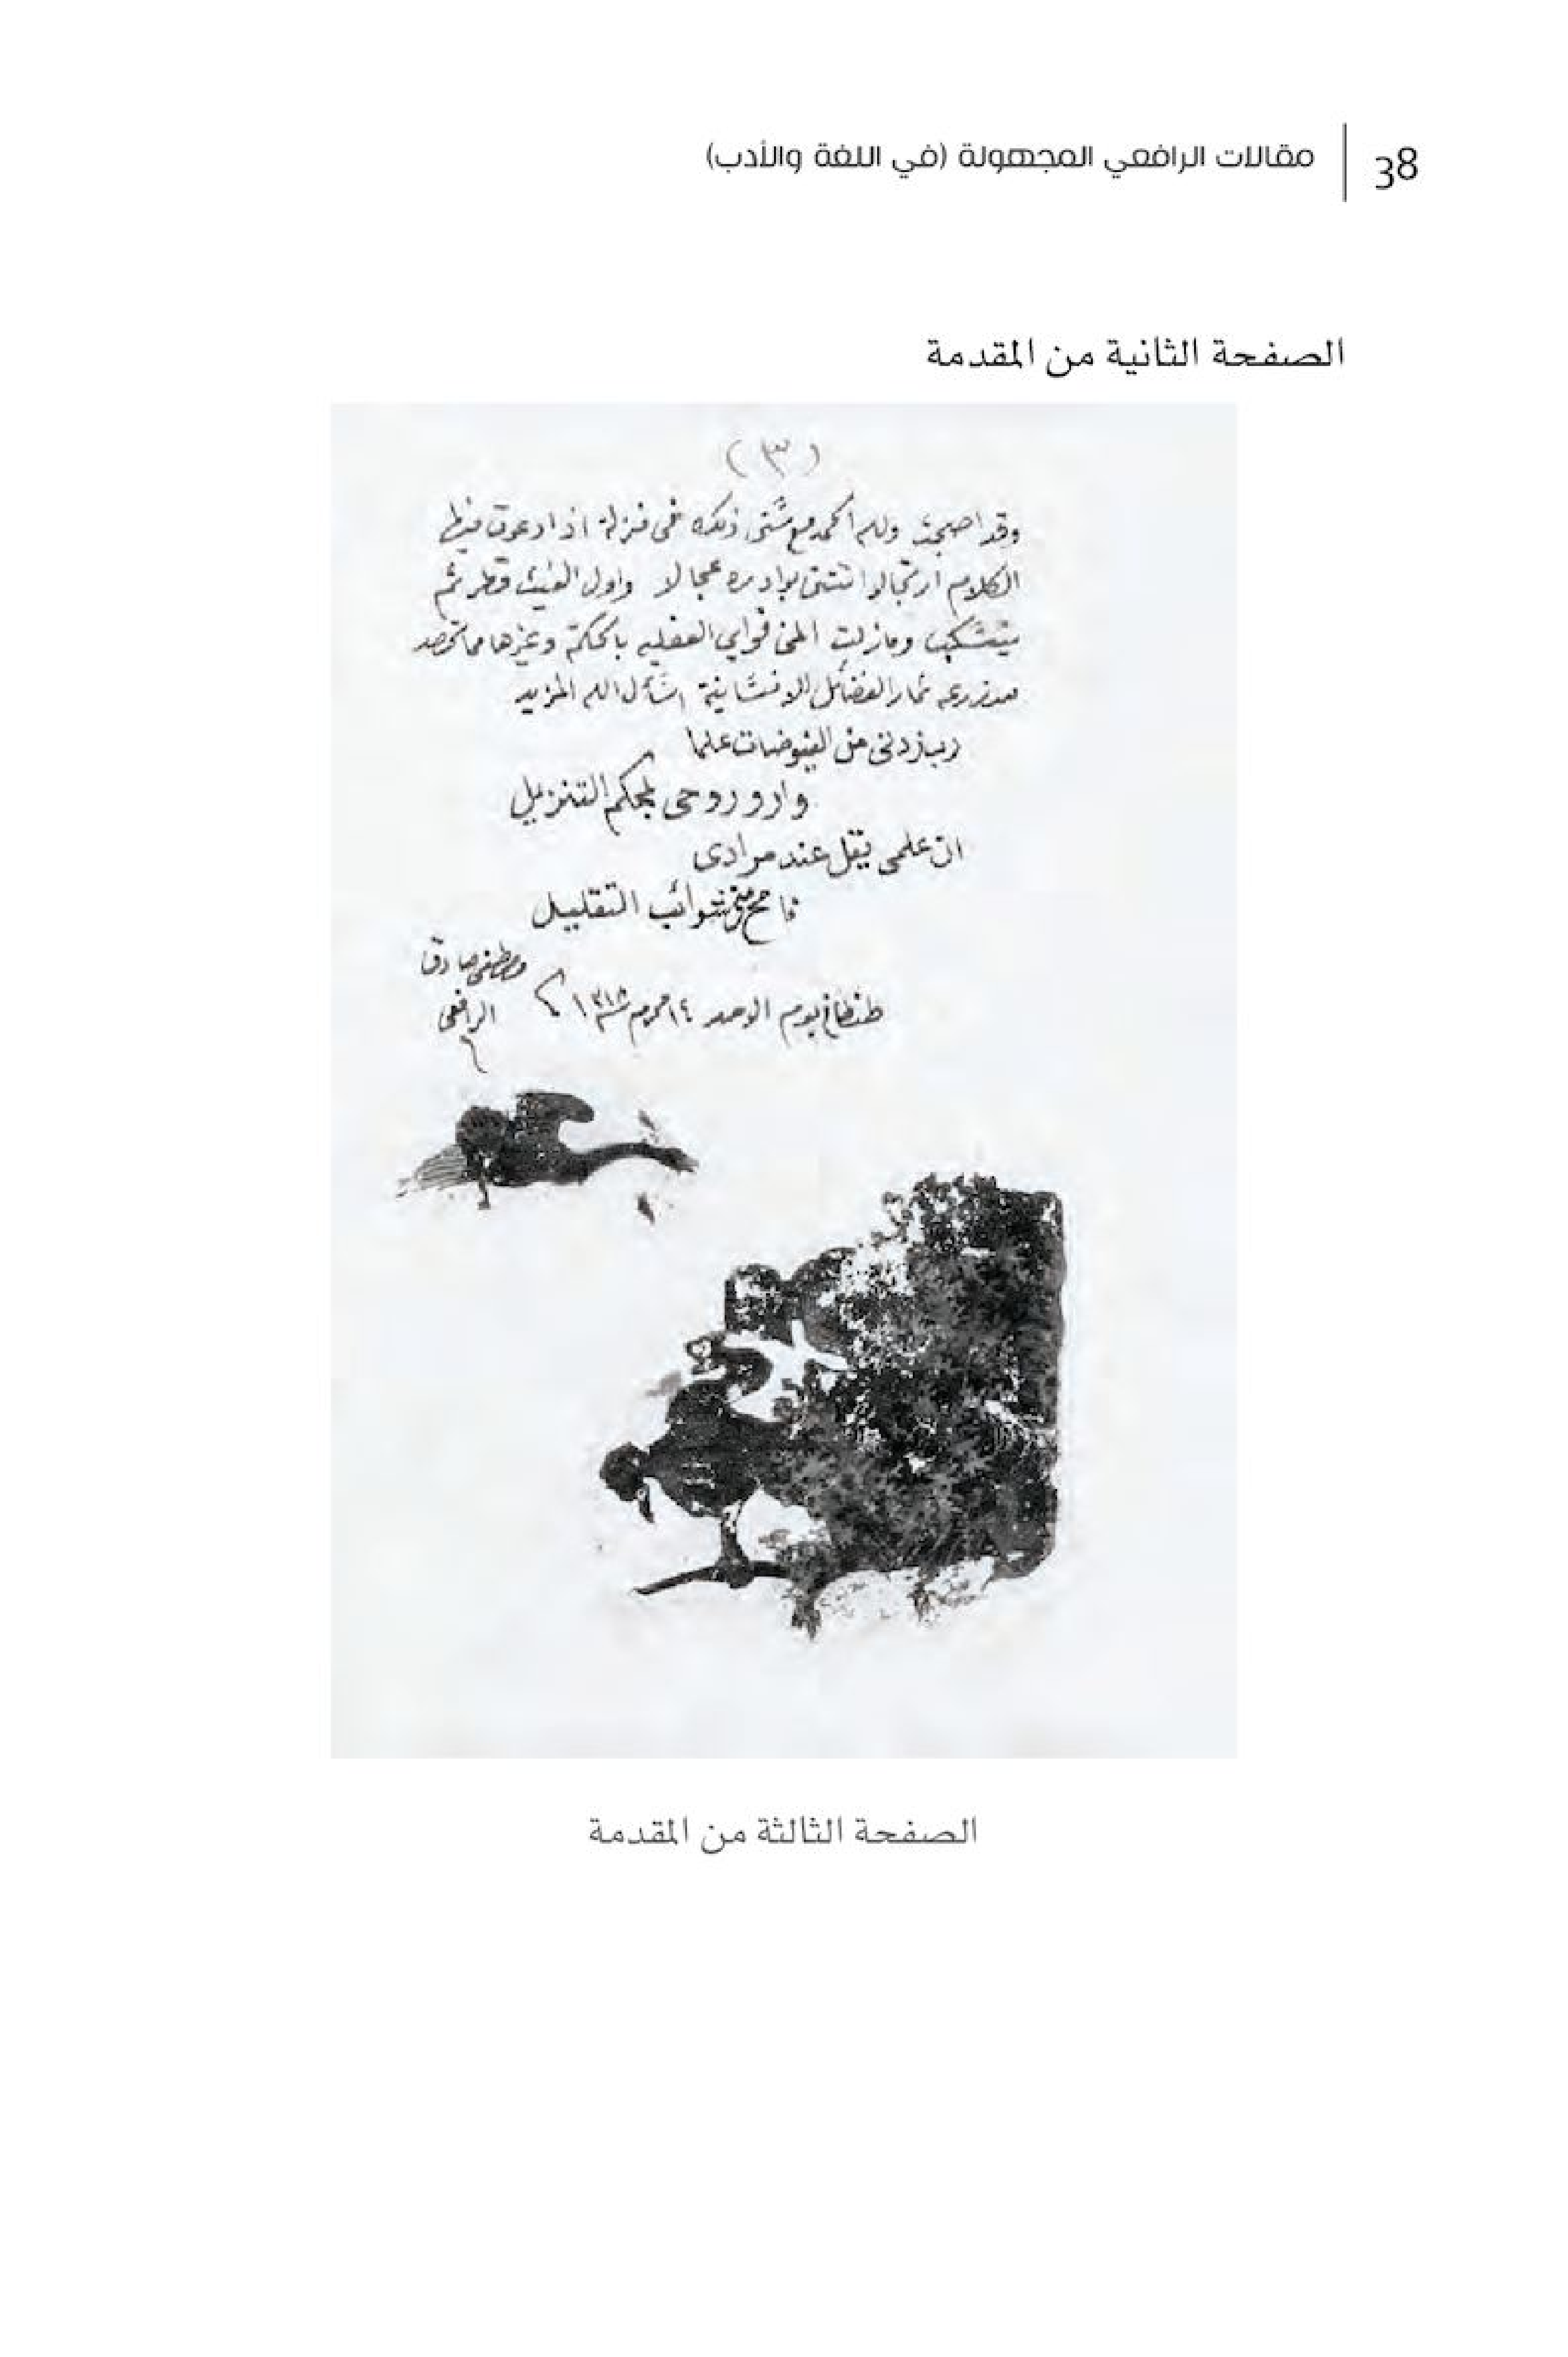 38
مقالات الرافعي المجهولة (في اللغة والأدب)
الصفحة الثانية من المقدمة
(٣)
وقد اصبحت ولله الحمد مع شتى ذلك فى منزلة اذا دعوت فيها
الكلام ارتجالا اتتنى بوادره عجالا واول الغيث قطر ثم
ينسكب وما زلت قواي العقليه بالحكمة وغيرها مما تحصد
ثمار الفضائل الانسانية اسأل الله المزيد
رب زدنى من الفيوضات علما
وارو روحى بمحكم التنزيل
ان علمى يقل عند مرادى
فامح عنى شوائب التقليل
طنطا يوم الاحد ١٤ محرم ١٣١٨
مصطفى صادق
الرافعى
الصفحة الثالثة من المقدمة